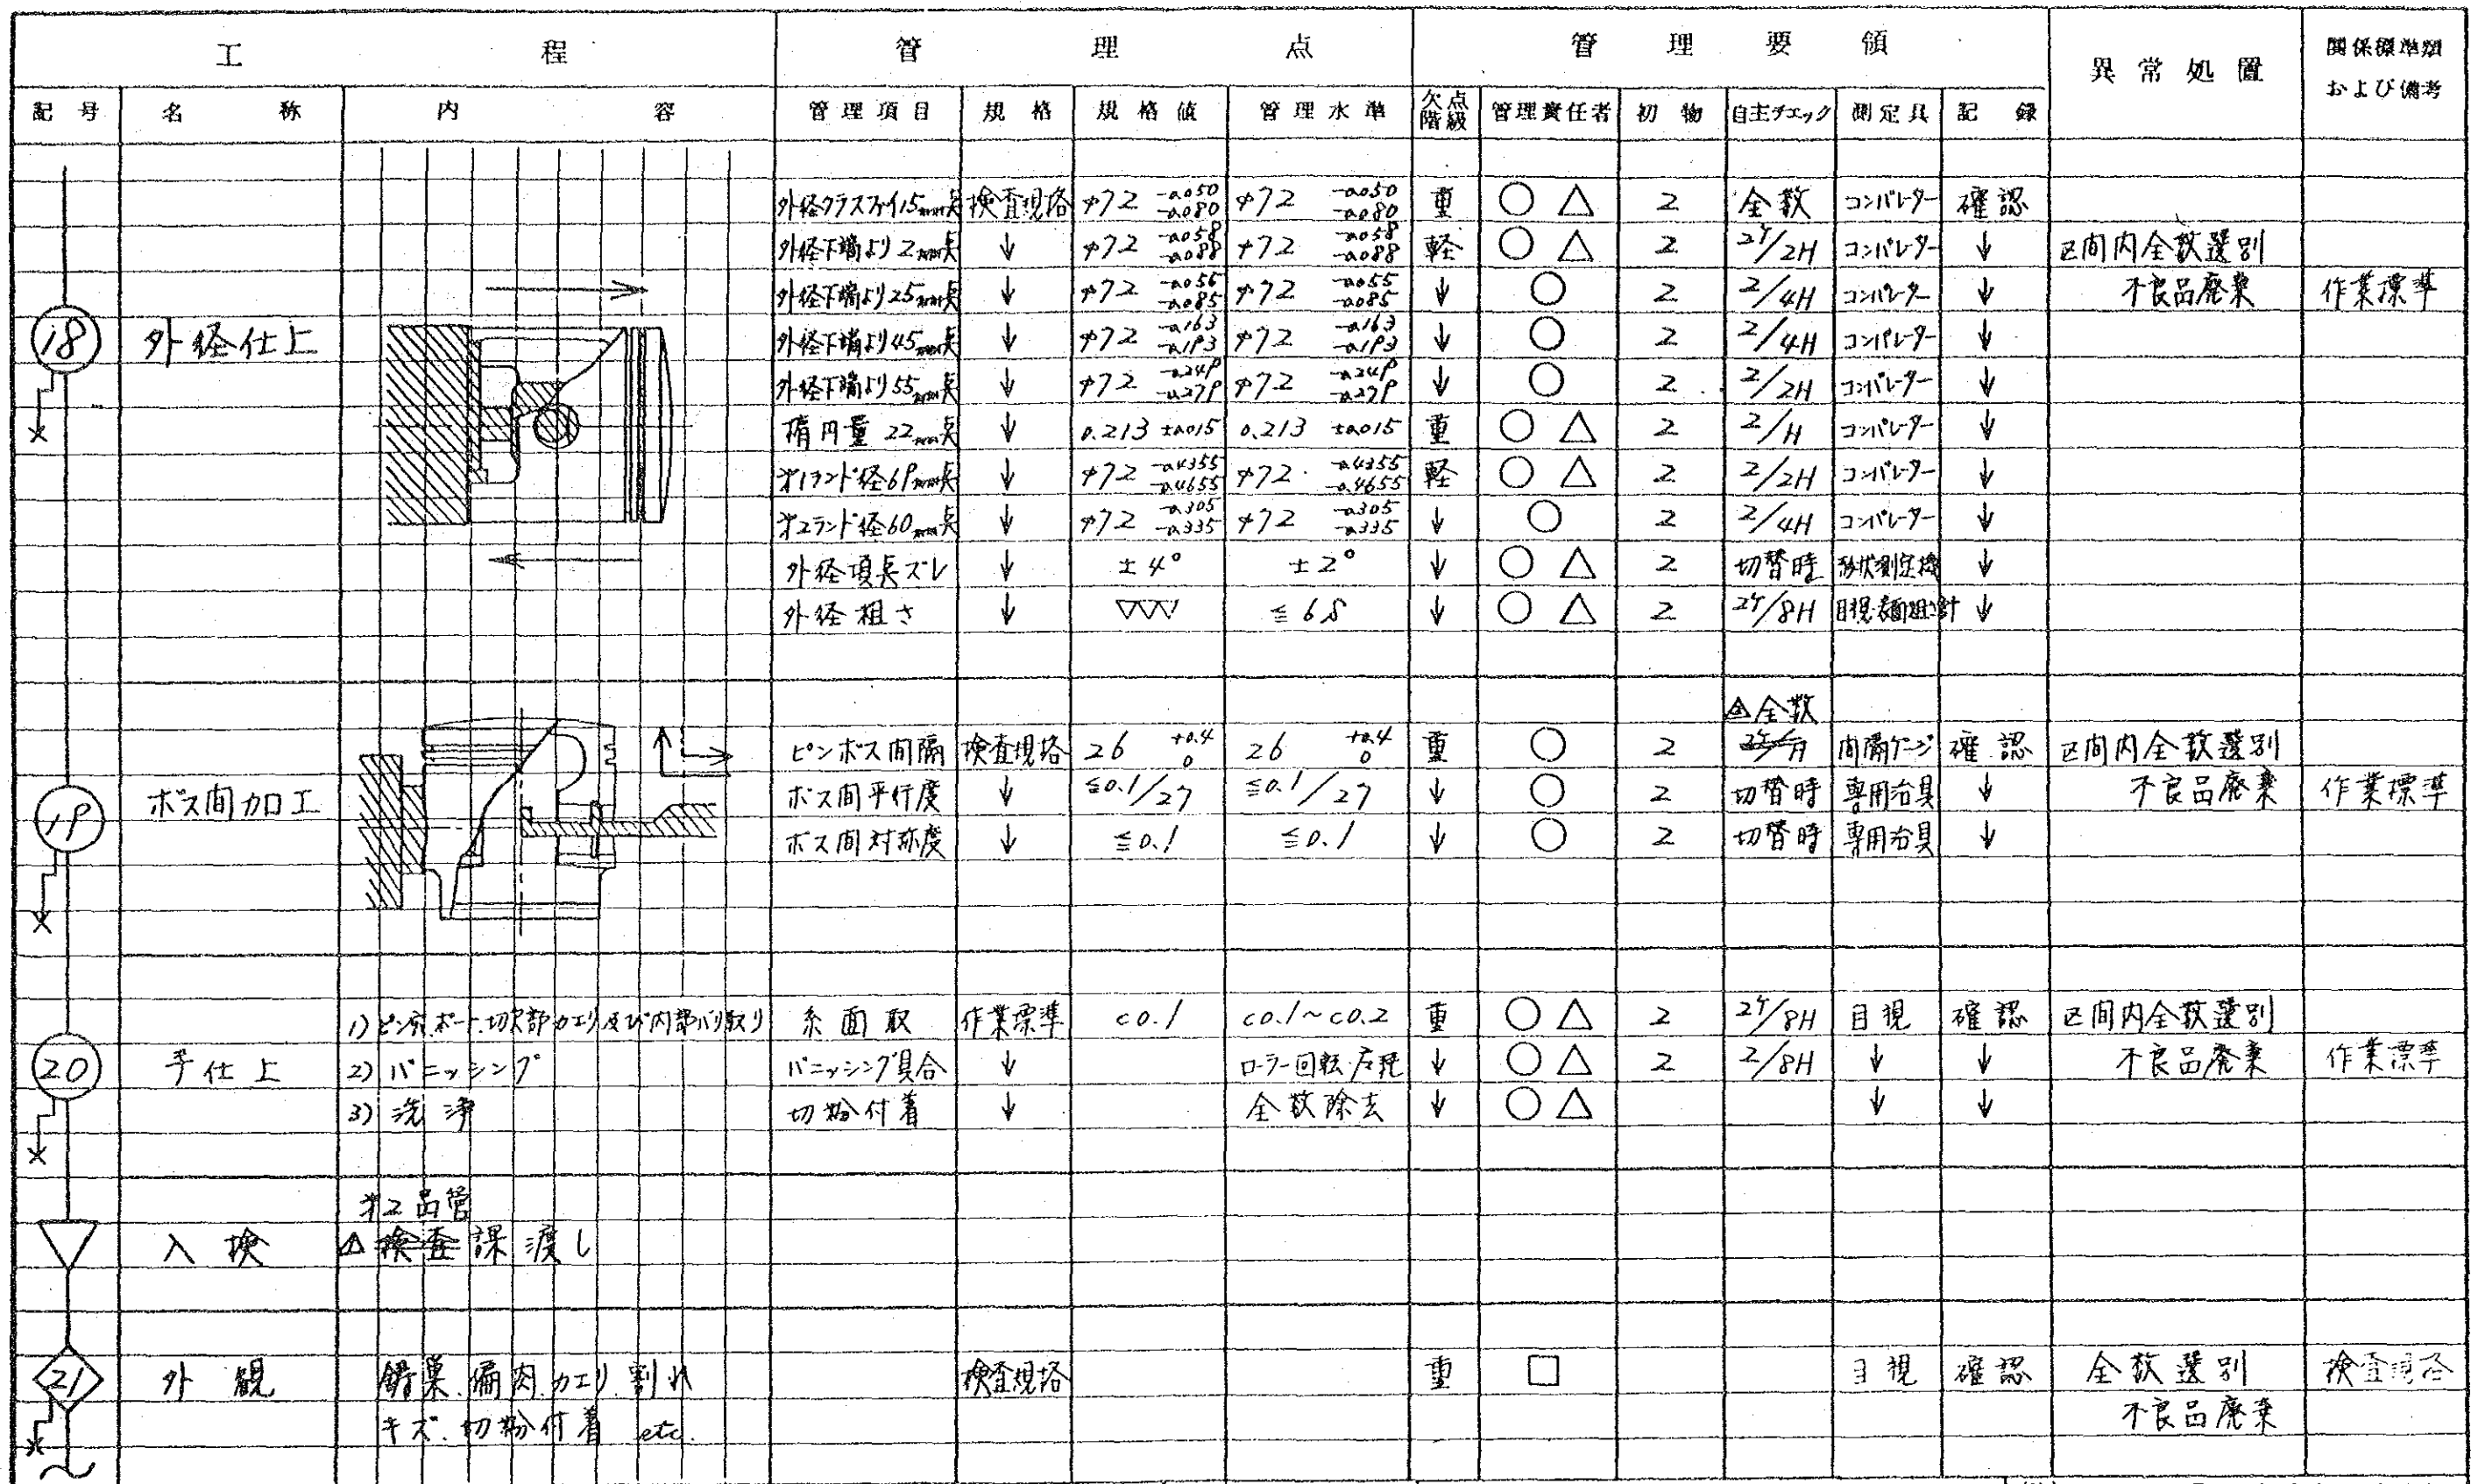 工 程 管 理 点 管 理 要 領 異常処置 関係標準類および備考
記号 名 称 内 容 管理項目 規格 規格値 管理水準 欠点階級 管理責任者 初物 自主チェック 測定具 記録
検査規格 φ72 -0.050 -0.080 φ72 -0.050 -0.080 重 ○ △ 2 全数 コンパレーター 確認
外径下端より2mm点 ↓ φ72 -0.058 -0.088 φ72 -0.058 -0.088 軽 ○ △ 2 2ケ/2H コンパレーター ↓ 区間内全数選別
外径下端より25mm点 ↓ φ72 -0.085 φ72 -0.055 -0.085 ↓ ○ 2 2/4H コンパレーター ↓ 不良品廃棄 作業標準
18 外径仕上 外径下端より45mm点 ↓ φ72 -0.163 -0.193 φ72 -0.163 -0.193 ↓ ○ 2 2/4H コンパレーター ↓
外径下端より55mm点 ↓ φ72 -0.249 -0.279 φ72 -0.249 -0.279 ↓ ○ 2 2/2H コンパレーター ↓
楕円量 22mm点 ↓ 0.213 ±0.015 0.213 ±0.015 重 ○ △ 2 2/H コンパレーター ↓
オ1ランド径69mm点 ↓ φ72 -0.4355 -0.4655 φ72 -0.4355 -0.4655 軽 ○ △ 2 2/2H コンパレーター ↓
オ2ランド径60mm点 ↓ φ72 -0.305 -0.335 φ72 -0.305 -0.335 ↓ ○ 2 2/4H コンパレーター ↓
外径頂点ズレ ↓ ±4° ±2° ↓ ○ △ 2 切替時 形状測定機 ↓
外径粗さ ↓ ▽▽▽ ≦6S ↓ ○ △ 2 2ケ/8H 目視・表面粗さ計 ↓
全数
ピンボス間隔 検査規格 26 +0.4 0 26 +0.4 0 重 ○ 2 2ケ/H 間隔ゲージ 確認 区間内全数選別
19 ボス間加工 ボス間平行度 ↓ ≦0.1/27 ≦0.1/27 ↓ ○ 2 切替時 専用治具 ↓ 不良品廃棄 作業標準
ボス間対称度 ↓ ≦0.1 ≦0.1 ↓ ○ 2 切替時 専用治具 ↓
1) ピン穴、ポート、切欠部カエリ及び内部バリ取り 糸面取 作業標準 C0.1 C0.1~C0.2 重 ○ △ 2 2ケ/8H 目視 確認 区間内全数選別
20 手仕上 2) バニッシング バニッシング具合 ↓ ローラー回転・ ↓ ○ △ 2 2/8H ↓ ↓ 不良品廃棄 作業標準
3) 洗浄 切粉付着 ↓ 全数除去 ↓ ○ △ ↓ ↓
オ2品管
▽ 入検 検査課渡し
21 外観 鋳巣、偏肉、カエリ、割れ 検査規格 重 □ 目視 確認 全数選別 検査規格
キズ、切粉付着 etc. 不良品廃棄